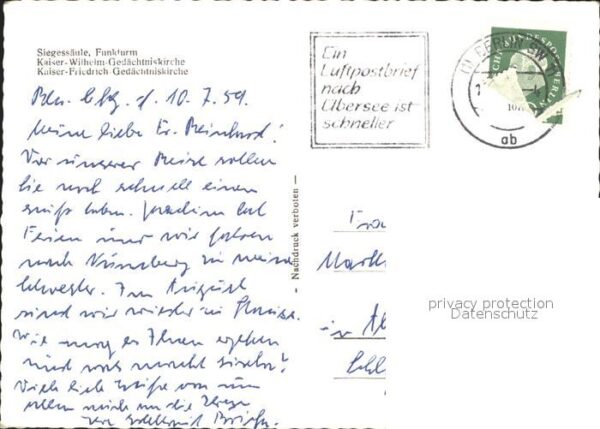 Siegessäule, Funkturm
Kaiser-Wilhelm-Gedächtniskirche
Kaiser-Friedrich-Gedächtniskirche
Bln. d. 10.7.59.
Meine liebe Fr. Reinhard!
Vor unserer Reise sollen
Sie noch schnell einen
Gruß haben. Joachim hat
Ferien und wir fahren
nach Nürnberg zu meiner
Schwester. Im August
sind wir wieder zu Hause.
Wie mag es Ihnen gehen
und was macht
Viele liebe Grüße von uns
allen
Ein
Luftpostbrief
nach
Übersee ist
schneller
BERLIN SW
ab
- Nachdruck verboten -
Frau
Markt
in
privacy protection
Datenschutz